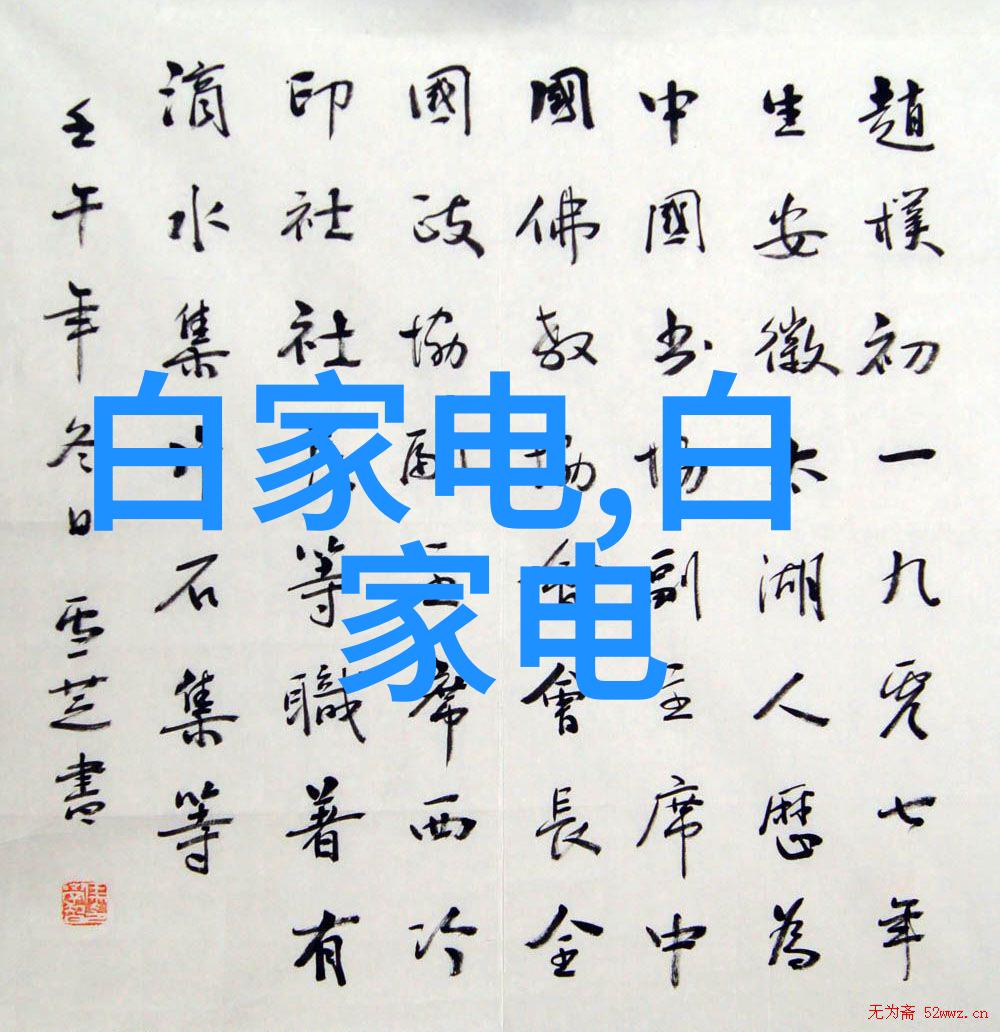 趙樸初一九零七年
生安徽太湖人歷為
中國书協副主席中
國佛教協會長全
國政協副主席西冷
印社社長等職著有
滴水集片石集等
壬午年冬日雪芝書
白家电,白
家电
无为斋 52wwz.cn